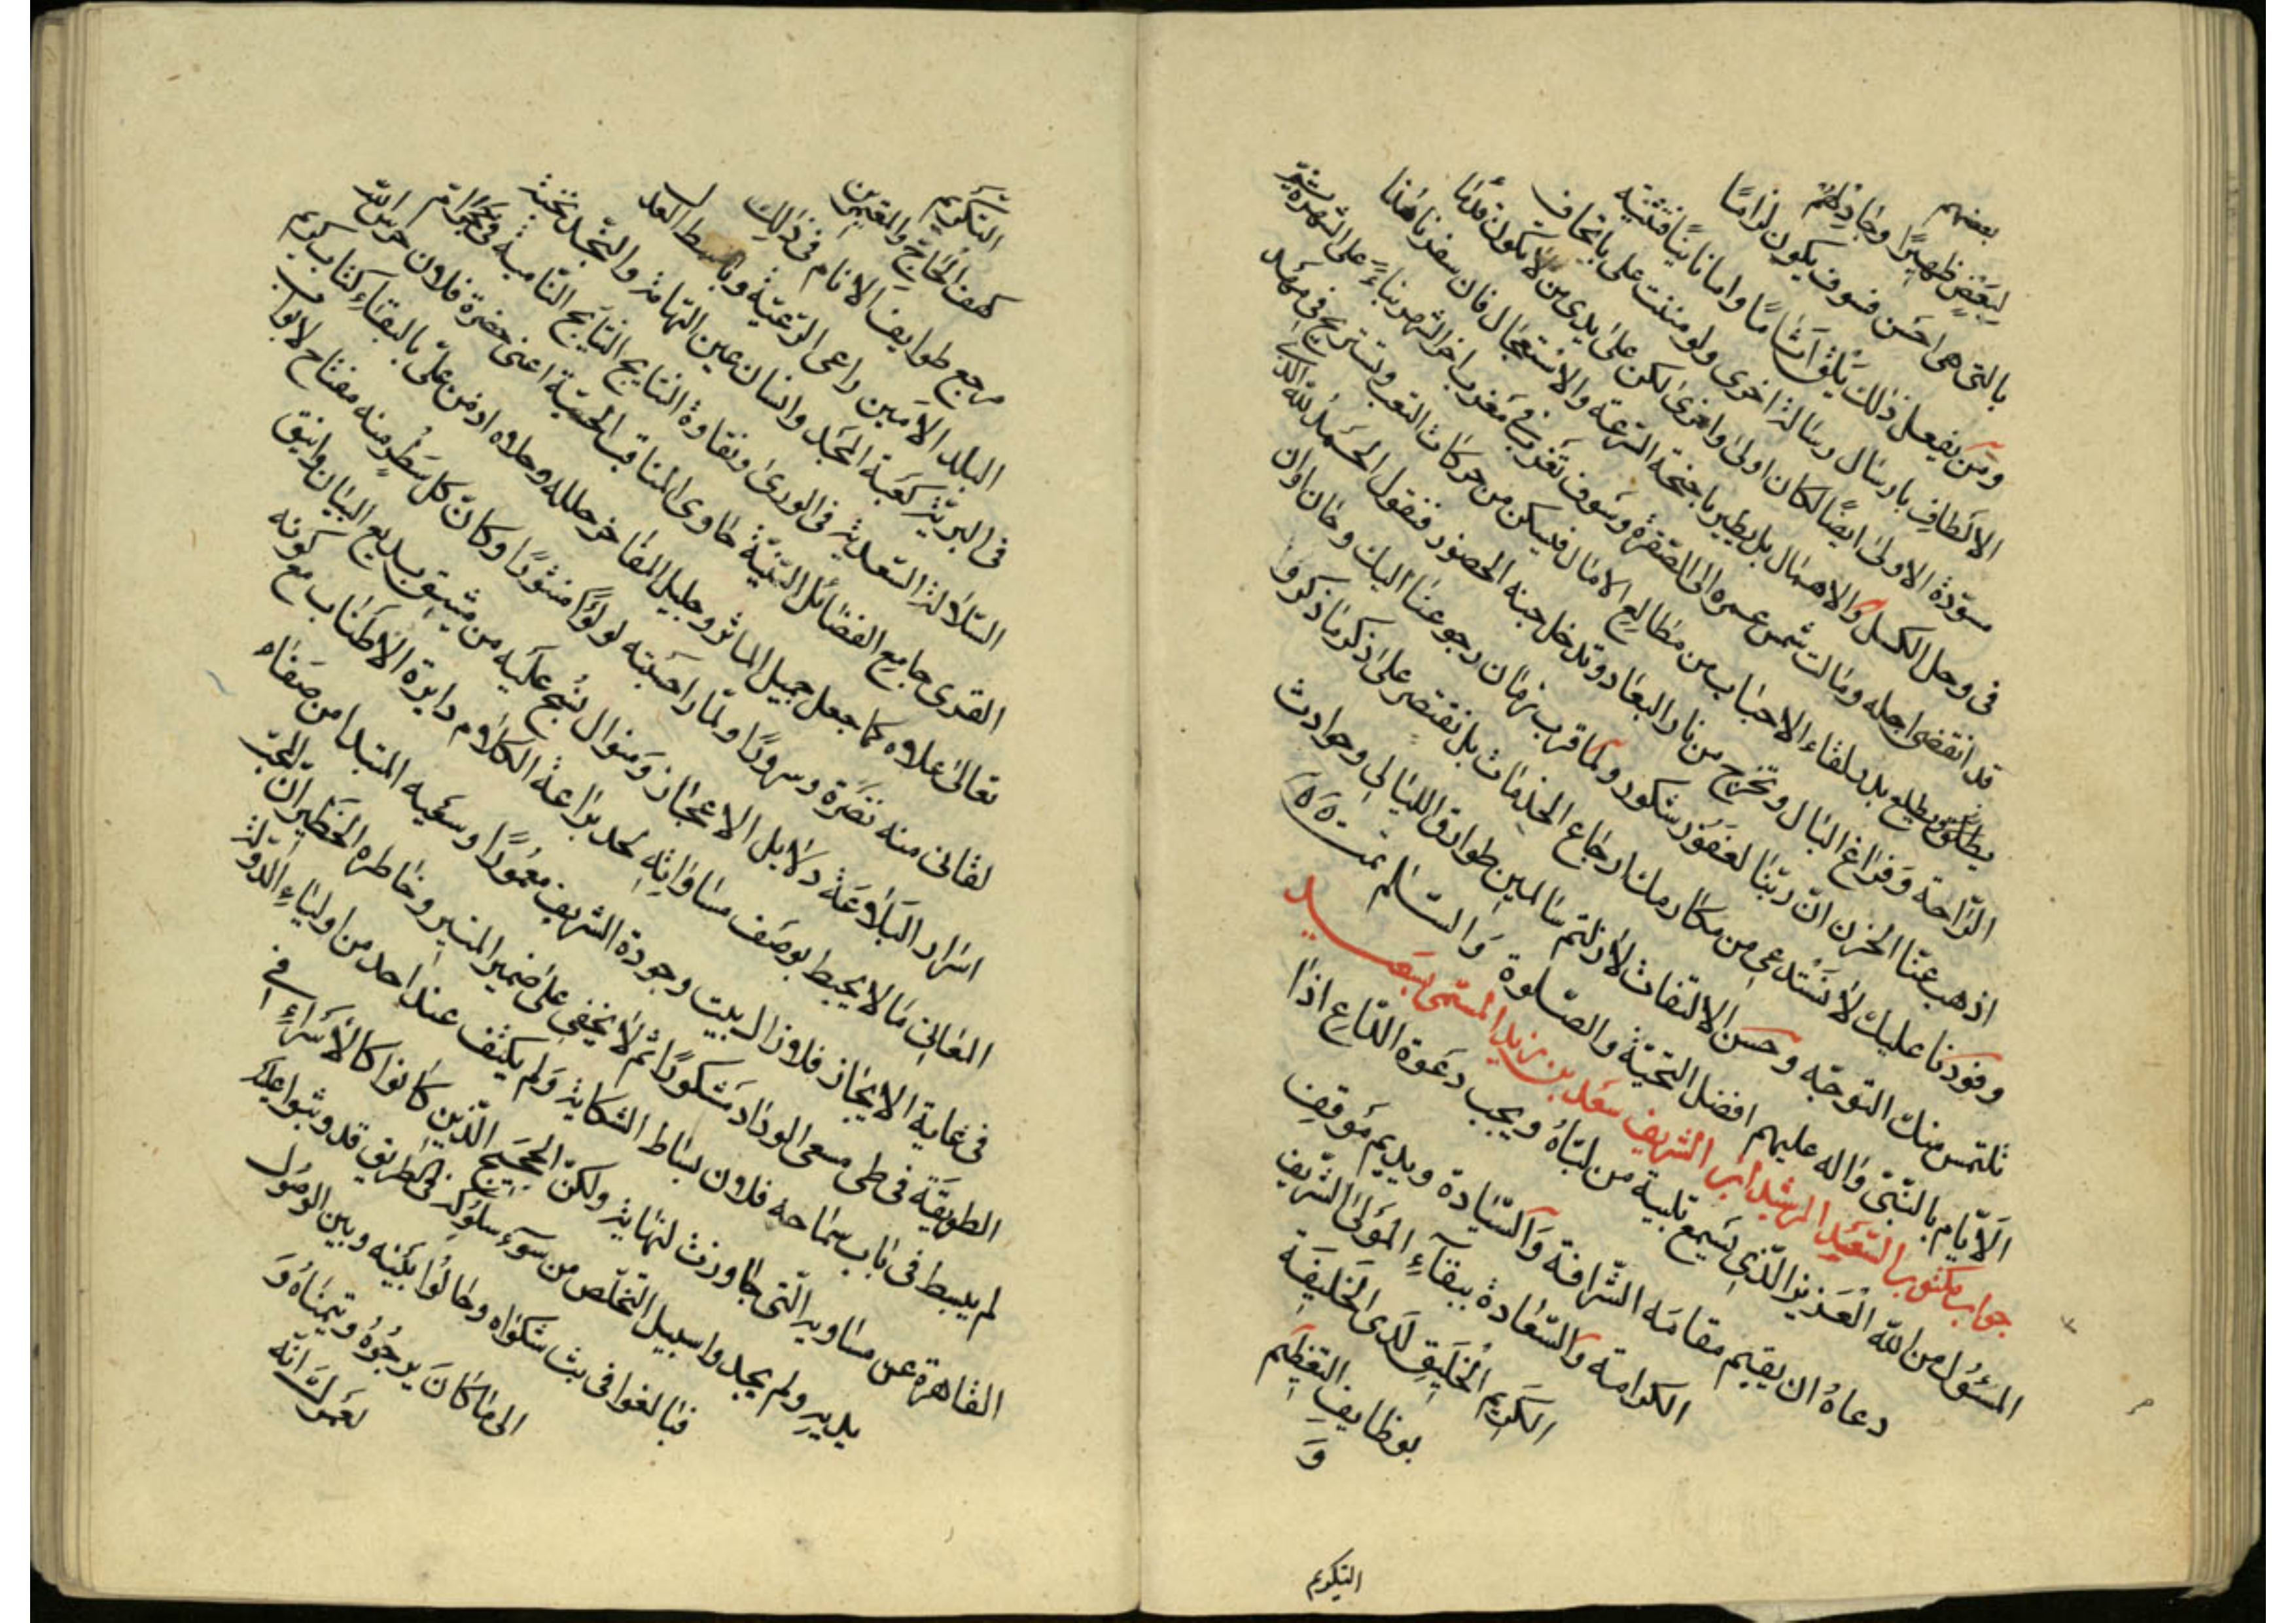 بعضهم
لبعض ظهيرًا وجادلهم
بالتى هى احسن فسوف يكون لزامًا
ومن يفعل ذلك يلق اثامًا واما نانيًا فتثنيه
الالطاف بارسال رسالة اخرى ولو مننت على باتحاف
مسوّدة الاولى ايضًا لكان اولى واحرى لكن على يدى من لا يكون قدمًا
فى وحل الكسل والاهمال بل يطير باجنحة السرعة والاستعجال فان سفرنا هذا
قد انقضى اجله ومالت شمس عمره الى الصفرة وسوف تغرب فى مغرب اخر الشهر بناءً على الشهرة
يطلق ويطلع بدر لقاء الاحباب من مطالع الامال فنسكن من حركات التعب ونستريح فى مهد
الرّاحة وفراغ البال ونخرج من نار البعاد وندخل جنه الحضور فنقول الحمد للّه الّذى
اذهب عنّا الحزن انّ ربّنا لغفور شكور ولما قرب زمان رجوعنا اليك وحان اوان
وفودنا عليك لا نستدعى من مكارمك ارجاع الخدمات بل نقتصر على ذكر ما ذكروا
نلتمس منك التوجّه وحسن الالتفات لا زلتم سالمين طوارق الليالى وحوادث
الايّام بالنّبى واله عليهم افضل التحيّة والصّلوة والسّلم تمت
جواب مكتوب السّعيد الرشيد ابن الشريف سعد بن زيد المسمّى بسعيد
المسئول من اللّه العزيز الّذى يسمع تلبية من لبّاهُ ويجيب دعوة الدّاع اذا
دعاهُ ان يقيم مقامَه الشّرافة والسّيادة ويديم موقف
الكرامة والسّعادة ببقآءِ المولى الشّريف
الكريم الخليق لدى الخليفة
بوظايف التعظيم
وَ
التكريم
التّكريم
كهف الحاجّ والمقيمين
مرجع طوايف الانام فى ذلك
البلد الامين راعى الرّعيّة وباسط العدل
فى البريّة كعبة المجد وانسان عين التهامة والنّجد نخبة
السّلالة السّعديّة فى الورى ونقاوة النتايج النّامية فى
القرى جامع الفضائل السّنيّة حاوى المناقب الحسنيّة اعنى حضرة فلان حرس اللّه
تعالى علاه كما جعل جميل الماثر وجليل المفاخر حلله وحلاه اذ من علىّ بالبقاء كتاب كريم
لقانى منه نضرة وسرورًا ولمّا راحسبته لولوًا منثورًا وكانّ كلّ سطرٍ منه مفتاح لابواب
اسرار البلاغة دلايل الاعجاز ومنوال نُسج عليه من مشيق بديع البيان وانيق
المعانى مَا لا يحيط بوصف مساواتِه لحد بزاعة الكلام دايرة الاطناب مع كونه
فى غاية الايجاز فلا زال بيت وجوده الشريف معمورًا وسعيه المبتدا من صفاه
الطويّة فى طى مسعى الوداد مشكورًا ثم لا يخفى على ضمير المنير وخاطره الخطير انّ المحبّ
لم يبسط فى باب سماحه فلان بساط الشكاية ولم يكشف عند احد من اولياء الدّولة
القاهرة عن مساويه الّتى جاوزت لنهاية ولكنّ الحجيج الّذين كانوا كالاسراءِ فى
يديهِ ولم يجدوا سبيل التخلّص من سوءِ سلوكه فى الطريق قد وشوا عليه
فبالغوا فى بث شكواه وحالُوا بينه وبين الوصُول
الى مَا كَان يرجُوهُ ويتمنّاهُ وَ
لعمرك انّه